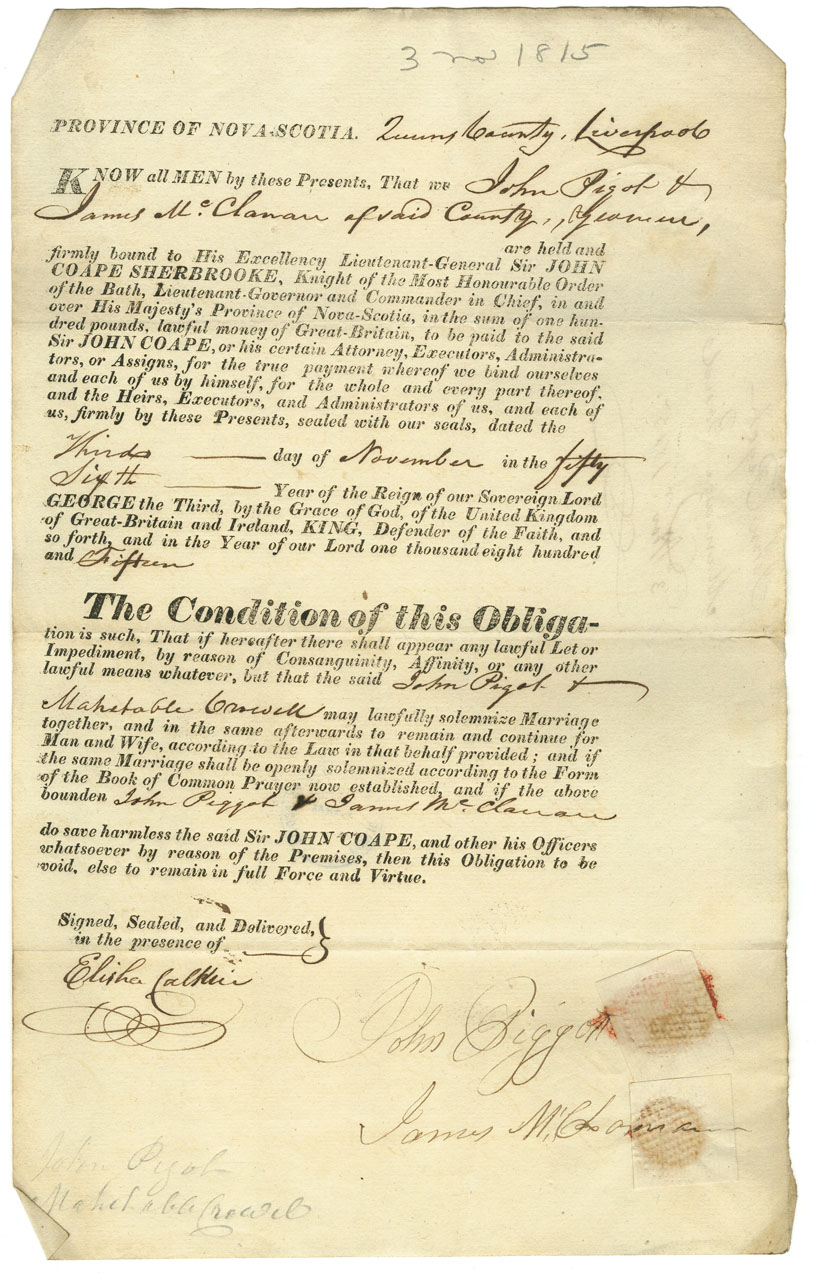 3 no 1815
PROVINCE OF NOVA-SCOTIA. Queens County, Liverpool
KNOW all MEN by these Presents, That we John Pigot &
James Mc. Clanan of said County, Yeomen,
are held and
firmly bound to His Excellency Lieutenant-General Sir JOHN
COAPE SHERBROOKE, Knight of the Most Honourable Order
of the Bath, Lieutenant-Governor and Commander in Chief, in and
over His Majesty's Province of Nova-Scotia, in the sum of one hun-
dred pounds, lawful money of Great-Britain, to be paid to the said
Sir JOHN COAPE, or his certain Attorney, Executors, Administra-
tors, or Assigns, for the true payment whereof we bind ourselves
and each of us by himself, for the whole and every part thereof,
and the Heirs, Executors, and Administrators of us, and each of
us, firmly by these Presents, sealed with our seals, dated the
Third day of November in the fifty
Sixth Year of the Reign of our Sovereign Lord
GEORGE the Third, by the Grace of God, of the United Kingdom
of Great-Britain and Ireland, KING, Defender of the Faith, and
so forth, and in the Year of our Lord one thousand eight hundred
and Fifteen
The Condition of this Obliga-
tion is such, That if hereafter there shall appear any lawful Let or
Impediment, by reason of Consanguinity, Affinity, or any other
lawful means whatever, but that the said John Pigot &
Mahetable Crowell may lawfully solemnize Marriage
together, and in the same afterwards to remain and continue for
Man and Wife, according to the Law in that behalf provided; and if
the same Marriage shall be openly solemnized according to the Form
of the Book of Common Prayer now established, and if the above
bounden John Piggot & James Mc. Clanan
do save harmless the said Sir JOHN COAPE, and other his Officers
whatsoever by reason of the Premises, then this Obligation to be
void, else to remain in full Force and Virtue.
Signed, Sealed, and Delivered,
in the presence of
Elisha Calkin
John Piggott
James Mc.
John Pigot
Mahetable Crowel